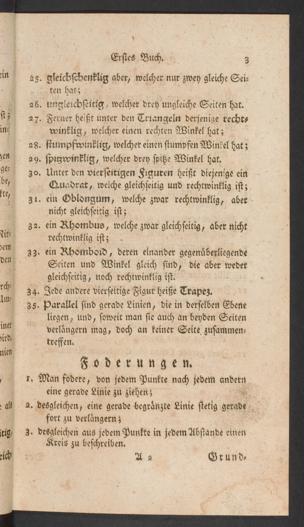 Erstes Buch. 3
25. gleichschenklig aber, welcher nur zwey gleiche Sei-
ten hat;
26. ungleichseitig, welcher drey ungleiche Seiten hat.
27. Ferner heißt unter den Triangeln derjenige recht-
winklig, welcher einen rechten Winkel hat;
28. stumpfwinklig, welcher einen stumpfen Winkel hat;
29. spitzwinklig, welcher drey spitze Winkel hat.
30. Unter den vierseitigen Figuren heißt diejenige ein
Quadrat, welche gleichseitig und rechtwinklig ist;
31. ein Oblongum, welche zwar rechtwinklig, aber
nicht gleichseitig ist;
32. ein Rhombus, welche zwar gleichseitig, aber nicht
rechtwinklig ist;
33. ein Rhomboid, deren einander gegenüberliegende
Seiten und Winkel gleich sind, die aber weder
gleichseitig, noch rechtwinklig ist.
34. Jede andere vierseitige Figur heißt Trapez.
35. Parallel sind gerade Linien, die in derselben Ebene
liegen, und, soweit man sie auch an beyden Seiten
verlängern mag, doch an keiner Seite zusammen-
treffen.
Foderungen.
1. Man fodere, von jedem Punkte nach jedem andern
eine gerade Linie zu ziehen;
2. desgleichen, eine gerade begränzte Linie stetig gerade
fort zu verlängern;
3. desgleichen aus jedem Punkte in jedem Abstande einen
Kreis zu beschreiben.
A 2 Grund-